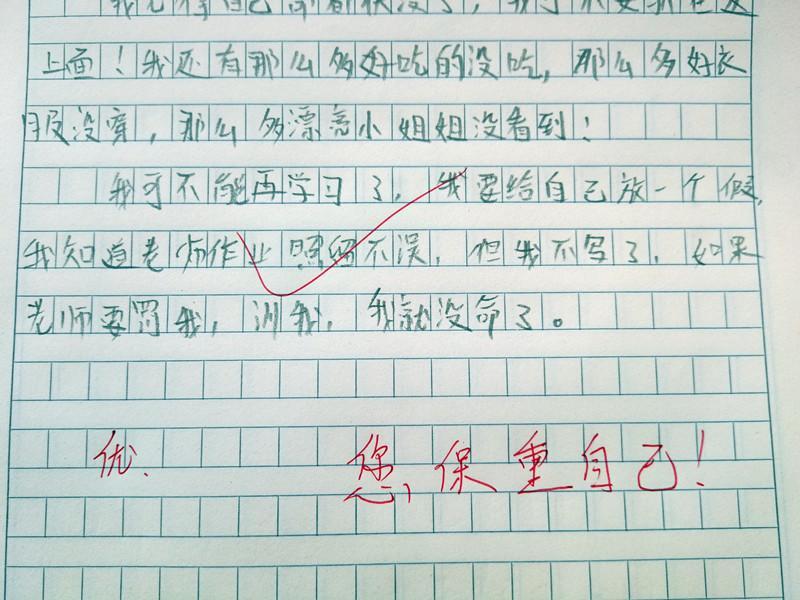 上面！我还有那么多好吃的没吃，那么多好衣
服没穿，那么多漂亮小姐姐没看到！
我可不能再学习了，我要给自己放一个假，
我知道老师作业照留不误，但我不写了，如果
老师要罚我，训我，我就没命了。
优.
您，保重自己！